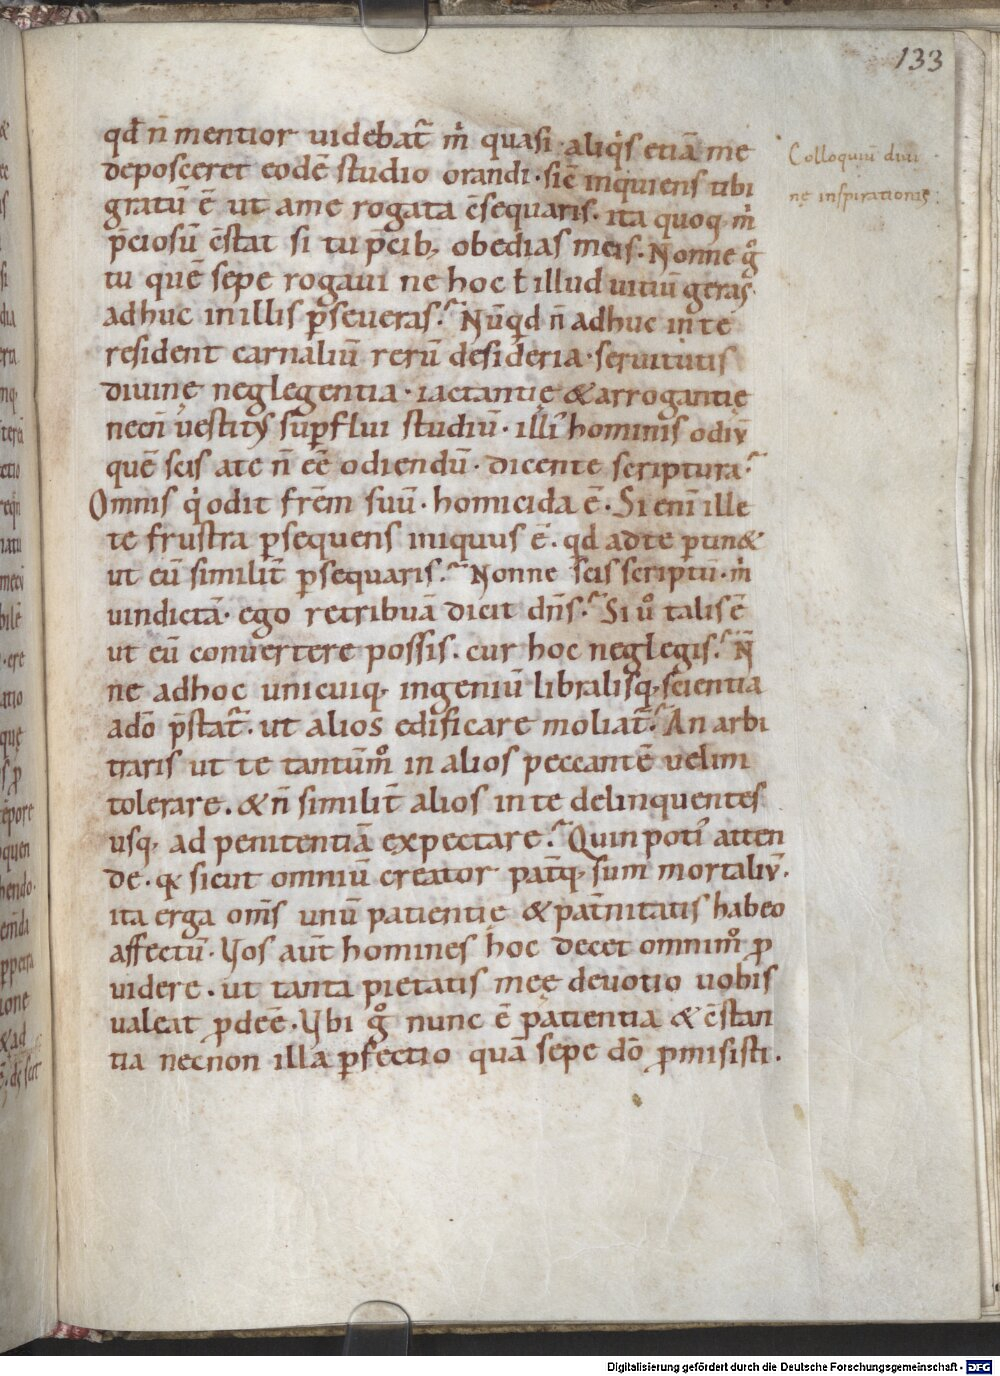 133
qđ n̄ mentior uidebat̄ m̊ quasi aliq̊s etiā me
deposceret eodē studio orandi · sic̄ inquiens tibi
gratū ē ut ame rogata ēsequaris · ita quoq; m̊
p̄ciosū ēstat si tu p̄cib; obedias meis · Nonne g̊
tu quē sepe rogaui ne hoc ł illud uitiū geras
adhuc inillis pseueras? Nūqd n̄ adhuc in te
resident carnaliū rerū desideria · seruitutis
diuinę neglegentia · iactantię & arrogantię
necn̄ uestitus supflui studiū · illi᷒ hominis odiū
quē scis ate n̄ eē odiendū · dicente scriptura?
Omnis q̊ odit frēm suū · homicida ē · Si enī ille
te frustra psequens iniquus ē · qd adte ptin&
ut eū similit̄ psequaris? Nonne scis scriptū · m̊
uindictā · ego retribuā dicit dn̄s? Si ů talis ē
ut eū conuertere possis · cur hoc neglegis? N̄
ne adhoc unicuiq; ingeniū libralisq; scientia
adō p̄stat̄ · ut alios edificare moliat̄? An arbi
traris ut te tantūm̊ in alios peccantē uelim
tolerare · & n̄ similit̄ alios in te delinquentes
usq; ad penitentiā expectare? Quin poti᷒ atten
de · q sicut omniū creator pat̄q; sum mortaliū ·
ita erga om̄s unū patientię & pat̄nitatis habeo
affectū · Vos aūt homines hoc decet omnim̊ p
uidere · ut tanta pietatis meę deuotio uobis
ualeat pdeē · Vbi g̊ nunc ē patientia & ēstan
tia necnon illa pfectio quā sepe dō pmisisti ·
Colloquiū diui
nę inspirationis
Digitalisierung gefördert durch die Deutsche Forschungsgemeinschaft - DFG